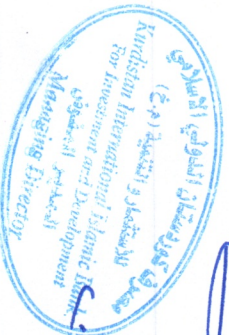 مصرف كوردستان الدولي الاسلامي
للاستثمار و التنمية
Kurdistan International Islamic Bank
For Investment and Development
المدير المفوض
Managing Director